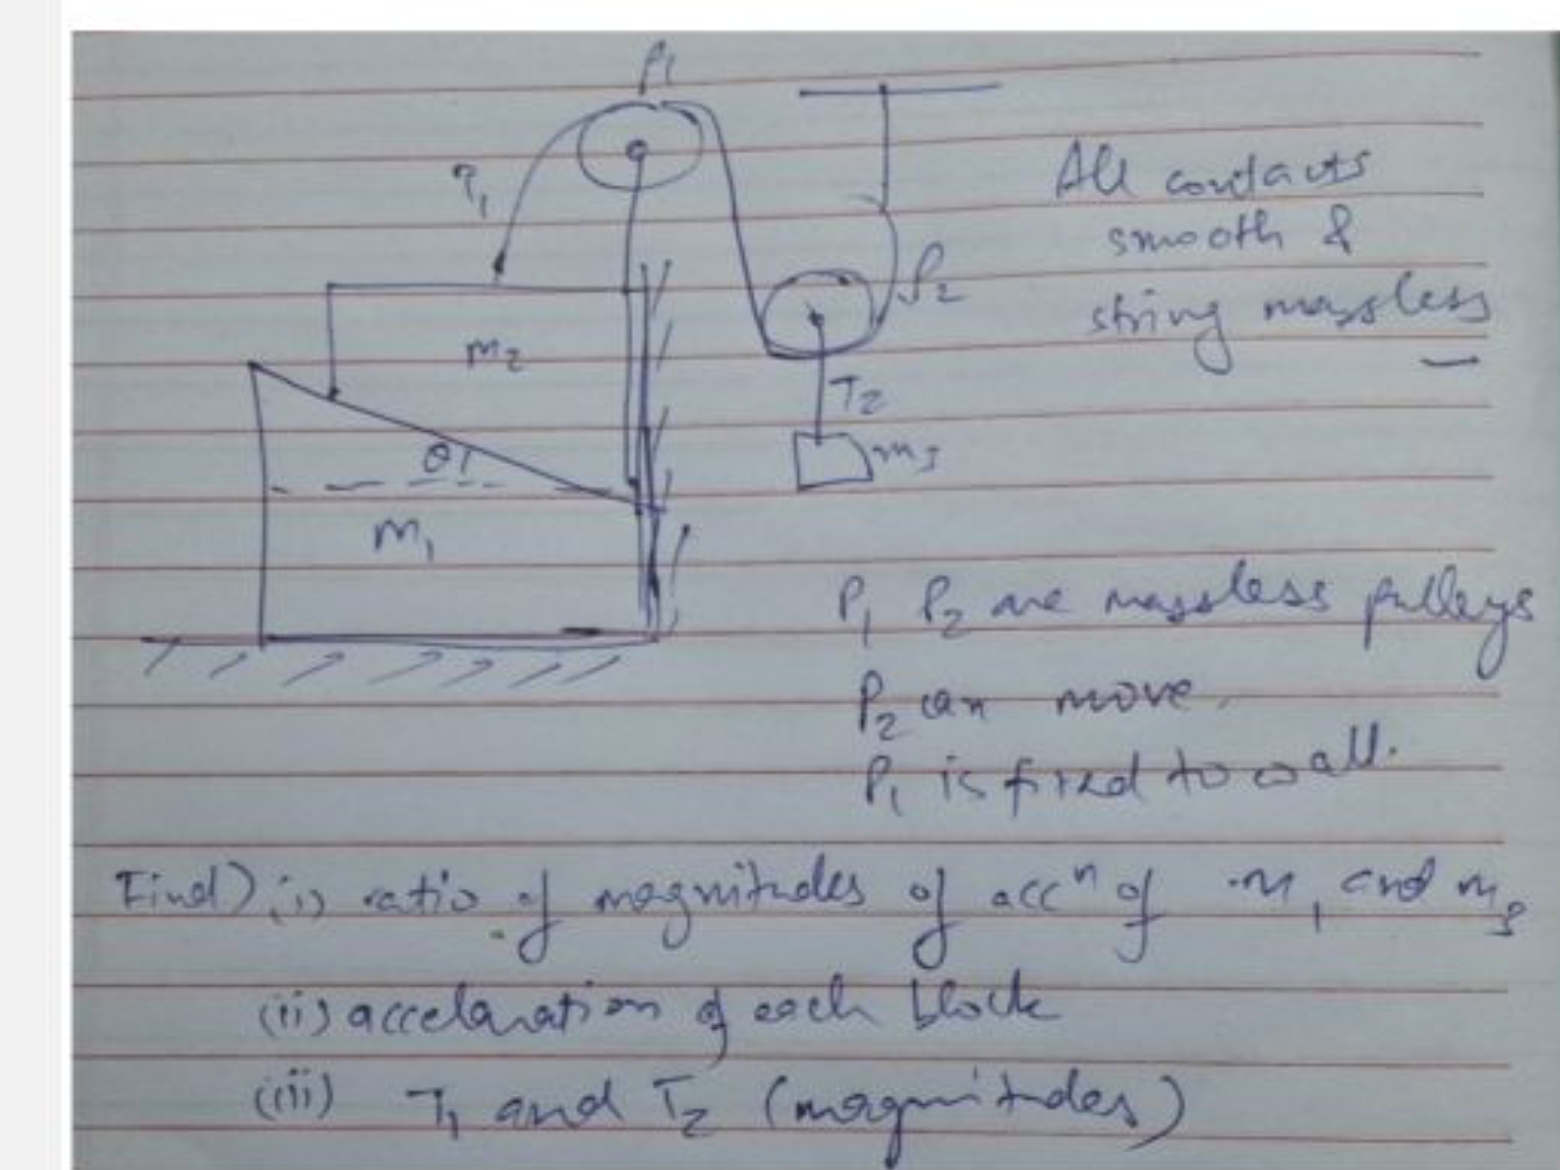 P1
T1
All contacts
smooth &
string massless
P2
m2
T2
m3
θ1
m1
P1 P2 are massless pulleys
P2 can move.
P1 is fixed to wall.
Find) (i) ratio of magnitudes of accⁿ of m1 and m3
(ii) acceleration of each block
(iii) T1 and T2 (magnitudes)